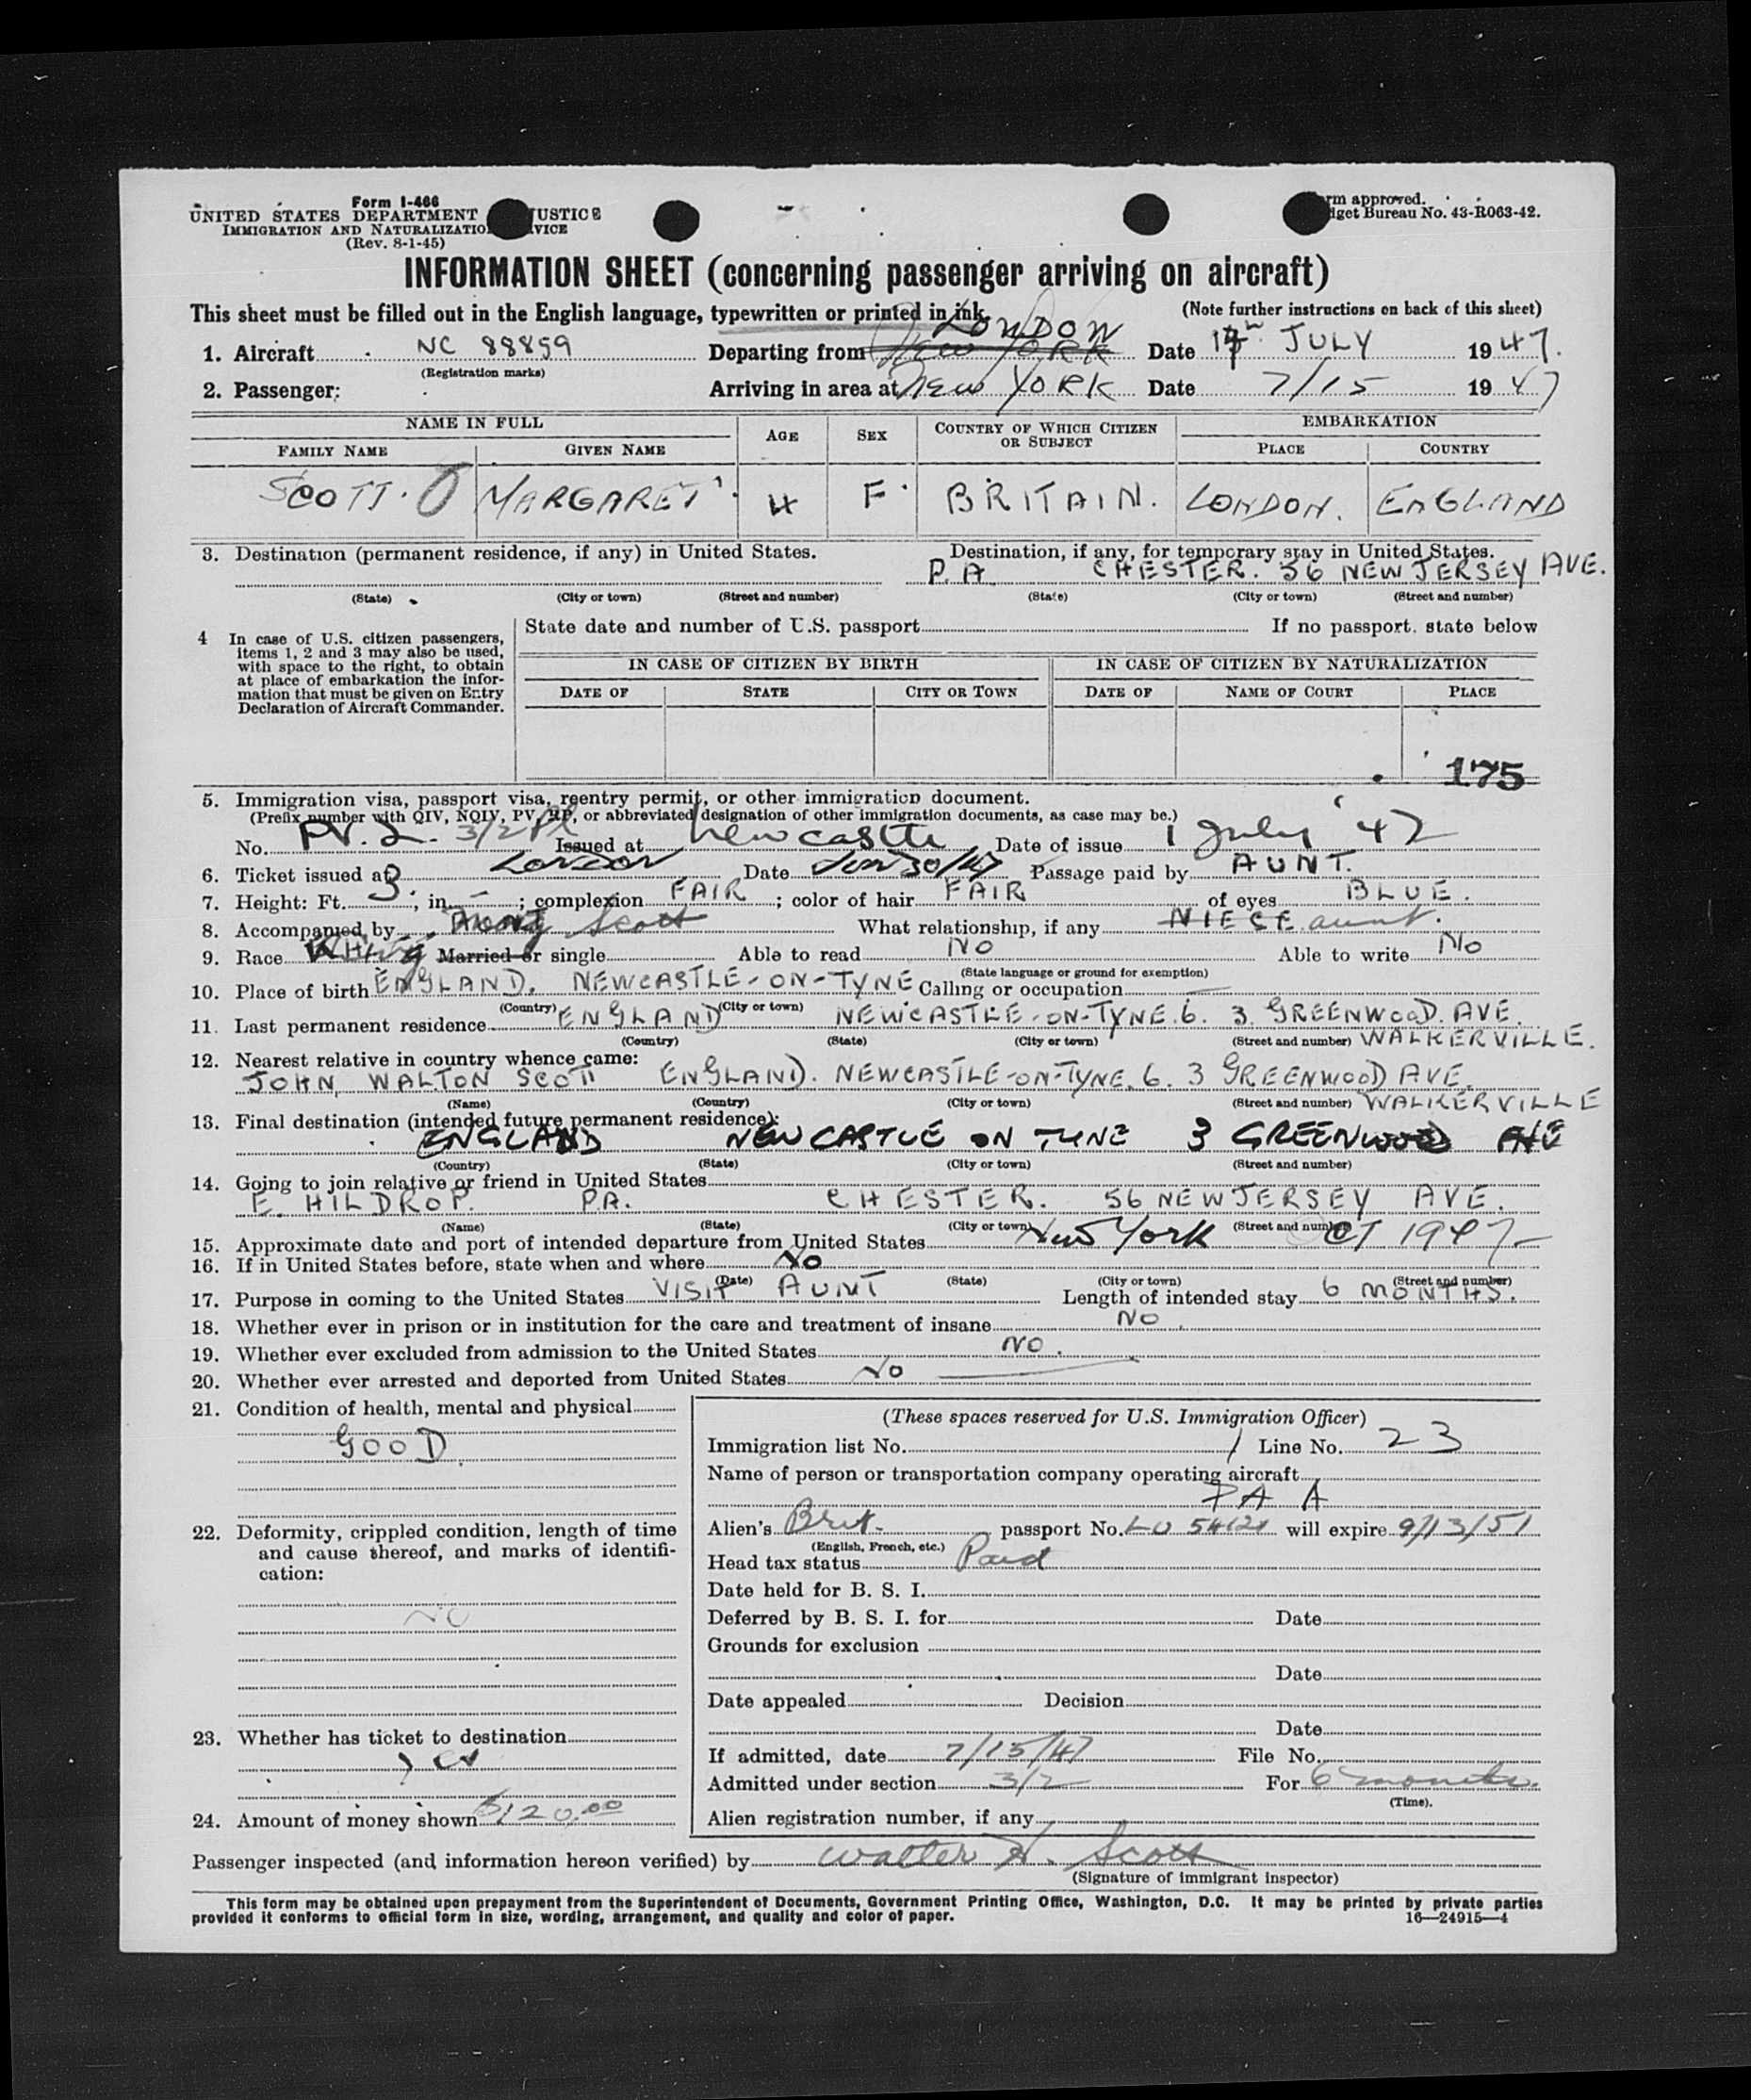 Form I-466
UNITED STATES DEPARTMENT JUSTICE
IMMIGRATION AND NATURALIZATIO VICE
(Rev. 8-1-45)
rm approved.
dget Bureau No. 43-R063-42.
INFORMATION SHEET (concerning passenger arriving on aircraft)
This sheet must be filled out in the English language, typewritten or printed in ink. (Note further instructions on back of this sheet)
LONDON
1. Aircraft NC 88859 Departing from New YORK Date JULY 1947.
(Registration marks)
2. Passenger: Arriving in area at New YORK Date 7/15 1947
NAME IN FULL AGE SEX COUNTRY OF WHICH CITIZEN OR SUBJECT EMBARKATION
FAMILY NAME GIVEN NAME PLACE COUNTRY
SCOTT. MARGARET 4 F BRITAIN. LONDON. ENGLAND
3. Destination (permanent residence, if any) in United States. Destination, if any, for temporary stay in United States.
P.A. CHESTER. 56 NEW JERSEY AVE.
(State) (City or town) (Street and number) (State) (City or town) (Street and number)
4 In case of U.S. citizen passengers, items 1, 2 and 3 may also be used, with space to the right, to obtain at place of embarkation the information that must be given on Entry Declaration of Aircraft Commander.
State date and number of U.S. passport If no passport, state below
IN CASE OF CITIZEN BY BIRTH IN CASE OF CITIZEN BY NATURALIZATION
DATE OF STATE CITY OR TOWN DATE OF NAME OF COURT PLACE
175
5. Immigration visa, passport visa, reentry permit, or other immigration document.
(Prefix number with QIV, NQIV, PV, RP, or abbreviated designation of other immigration documents, as case may be.)
No. PV. 2. 3/2 Issued at Newcastle Date of issue 1 July 47
6. Ticket issued at London Date Jun 30/47 Passage paid by AUNT.
7. Height: Ft. 3; in. –; complexion FAIR; color of hair FAIR of eyes BLUE.
8. Accompanied by Scott What relationship, if any NIECE aunt.
9. Race Married or single Able to read NO Able to write No
(State language or ground for exemption)
10. Place of birth ENGLAND. NEWCASTLE-ON-TYNE Calling or occupation —
(Country) (City or town)
11. Last permanent residence ENGLAND NEWCASTLE-ON-TYNE.6. 3. GREENWOOD. AVE.
(Country) (State) (City or town) (Street and number) WALKERVILLE.
12. Nearest relative in country whence came:
JOHN WALTON SCOTT ENGLAND. NEWCASTLE-ON-TYNE. 6. 3 GREENWOOD AVE.
(Name) (Country) (City or town) (Street and number) WALKERVILLE
13. Final destination (intended future permanent residence):
ENGLAND NEWCASTLE ON TYNE 3 GREENWOOD AVE
(Country) (State) (City or town) (Street and number)
14. Going to join relative or friend in United States
E. HILDROP. P.A. CHESTER. 56 NEW JERSEY AVE.
(Name) (State) (City or town) (Street and number)
15. Approximate date and port of intended departure from United States New York OCT 1947
16. If in United States before, state when and where No
(Date) (State) (City or town) (Street and number)
17. Purpose in coming to the United States VISIT AUNT Length of intended stay 6 MONTHS.
18. Whether ever in prison or in institution for the care and treatment of insane NO.
19. Whether ever excluded from admission to the United States NO.
20. Whether ever arrested and deported from United States No
21. Condition of health, mental and physical
GOOD.
22. Deformity, crippled condition, length of time and cause thereof, and marks of identification:
NO
23. Whether has ticket to destination
yes
24. Amount of money shown $120.00
(These spaces reserved for U.S. Immigration Officer)
Immigration list No. 1 Line No. 23
Name of person or transportation company operating aircraft
PAA
Alien's Brit. passport No. will expire 9/13/51
(English, French, etc.)
Head tax status Paid
Date held for B. S. I.
Deferred by B. S. I. for Date
Grounds for exclusion
Date
Date appealed Decision
Date
If admitted, date 7/15/47 File No.
Admitted under section 3/2 For 6 months.
(Time).
Alien registration number, if any
Passenger inspected (and information hereon verified) by Walter H. Scott
(Signature of immigrant inspector)
This form may be obtained upon prepayment from the Superintendent of Documents, Government Printing Office, Washington, D.C. It may be printed by private parties
provided it conforms to official form in size, wording, arrangement, and quality and color of paper. 16—24915—4